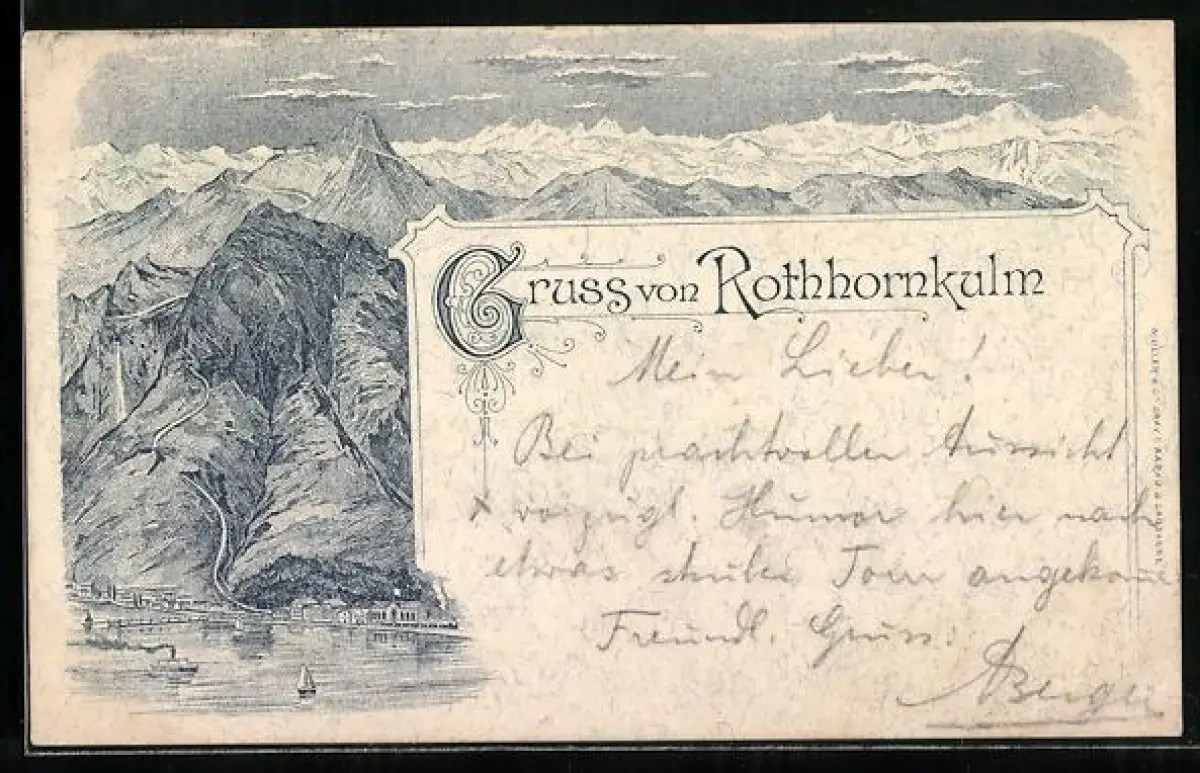 Gruss von Rothhornkulm
Mein Lieber!
Bei prachtvoller Aussicht
+ vorzügl. Humor hier nach
etwas Tour angekomme
Freundl. Gruss.
ABerger